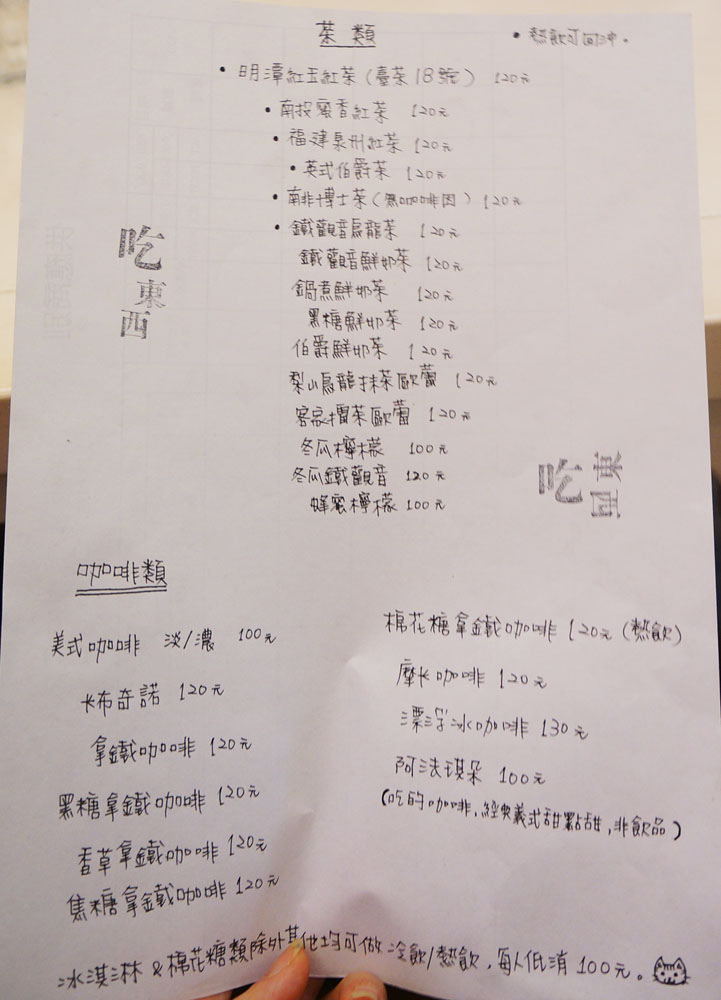 茶類
• 熱飲可回沖。
• 明潭紅玉紅茶(臺茶18號) 120元
• 南投蜜香紅茶 120元
• 福建泉州紅茶 120元
• 英式伯爵茶 120元
• 南非博士茶(無咖啡因) 120元
• 鐵觀音烏龍茶 120元
鐵觀音鮮奶茶 120元
鍋煮鮮奶茶 120元
黑糖鮮奶茶 120元
伯爵鮮奶茶 120元
梨山烏龍抹茶歐蕾 120元
客家擂茶歐蕾 120元
冬瓜檸檬 100元
冬瓜鐵觀音 120元
蜂蜜檸檬 100元
吃東西
吃東西
咖啡類
美式咖啡 淡/濃 100元
卡布奇諾 120元
拿鐵咖啡 120元
黑糖拿鐵咖啡 120元
香草拿鐵咖啡 120元
焦糖拿鐵咖啡 120元
棉花糖拿鐵咖啡 120元(熱飲)
摩卡咖啡 120元
漂浮冰咖啡 130元
阿法琪朵 100元
(吃的咖啡,經典義式甜點甜,非飲品)
冰淇淋 & 棉花糖類除外其他均可做 冷飲/熱飲,每人低消100元。